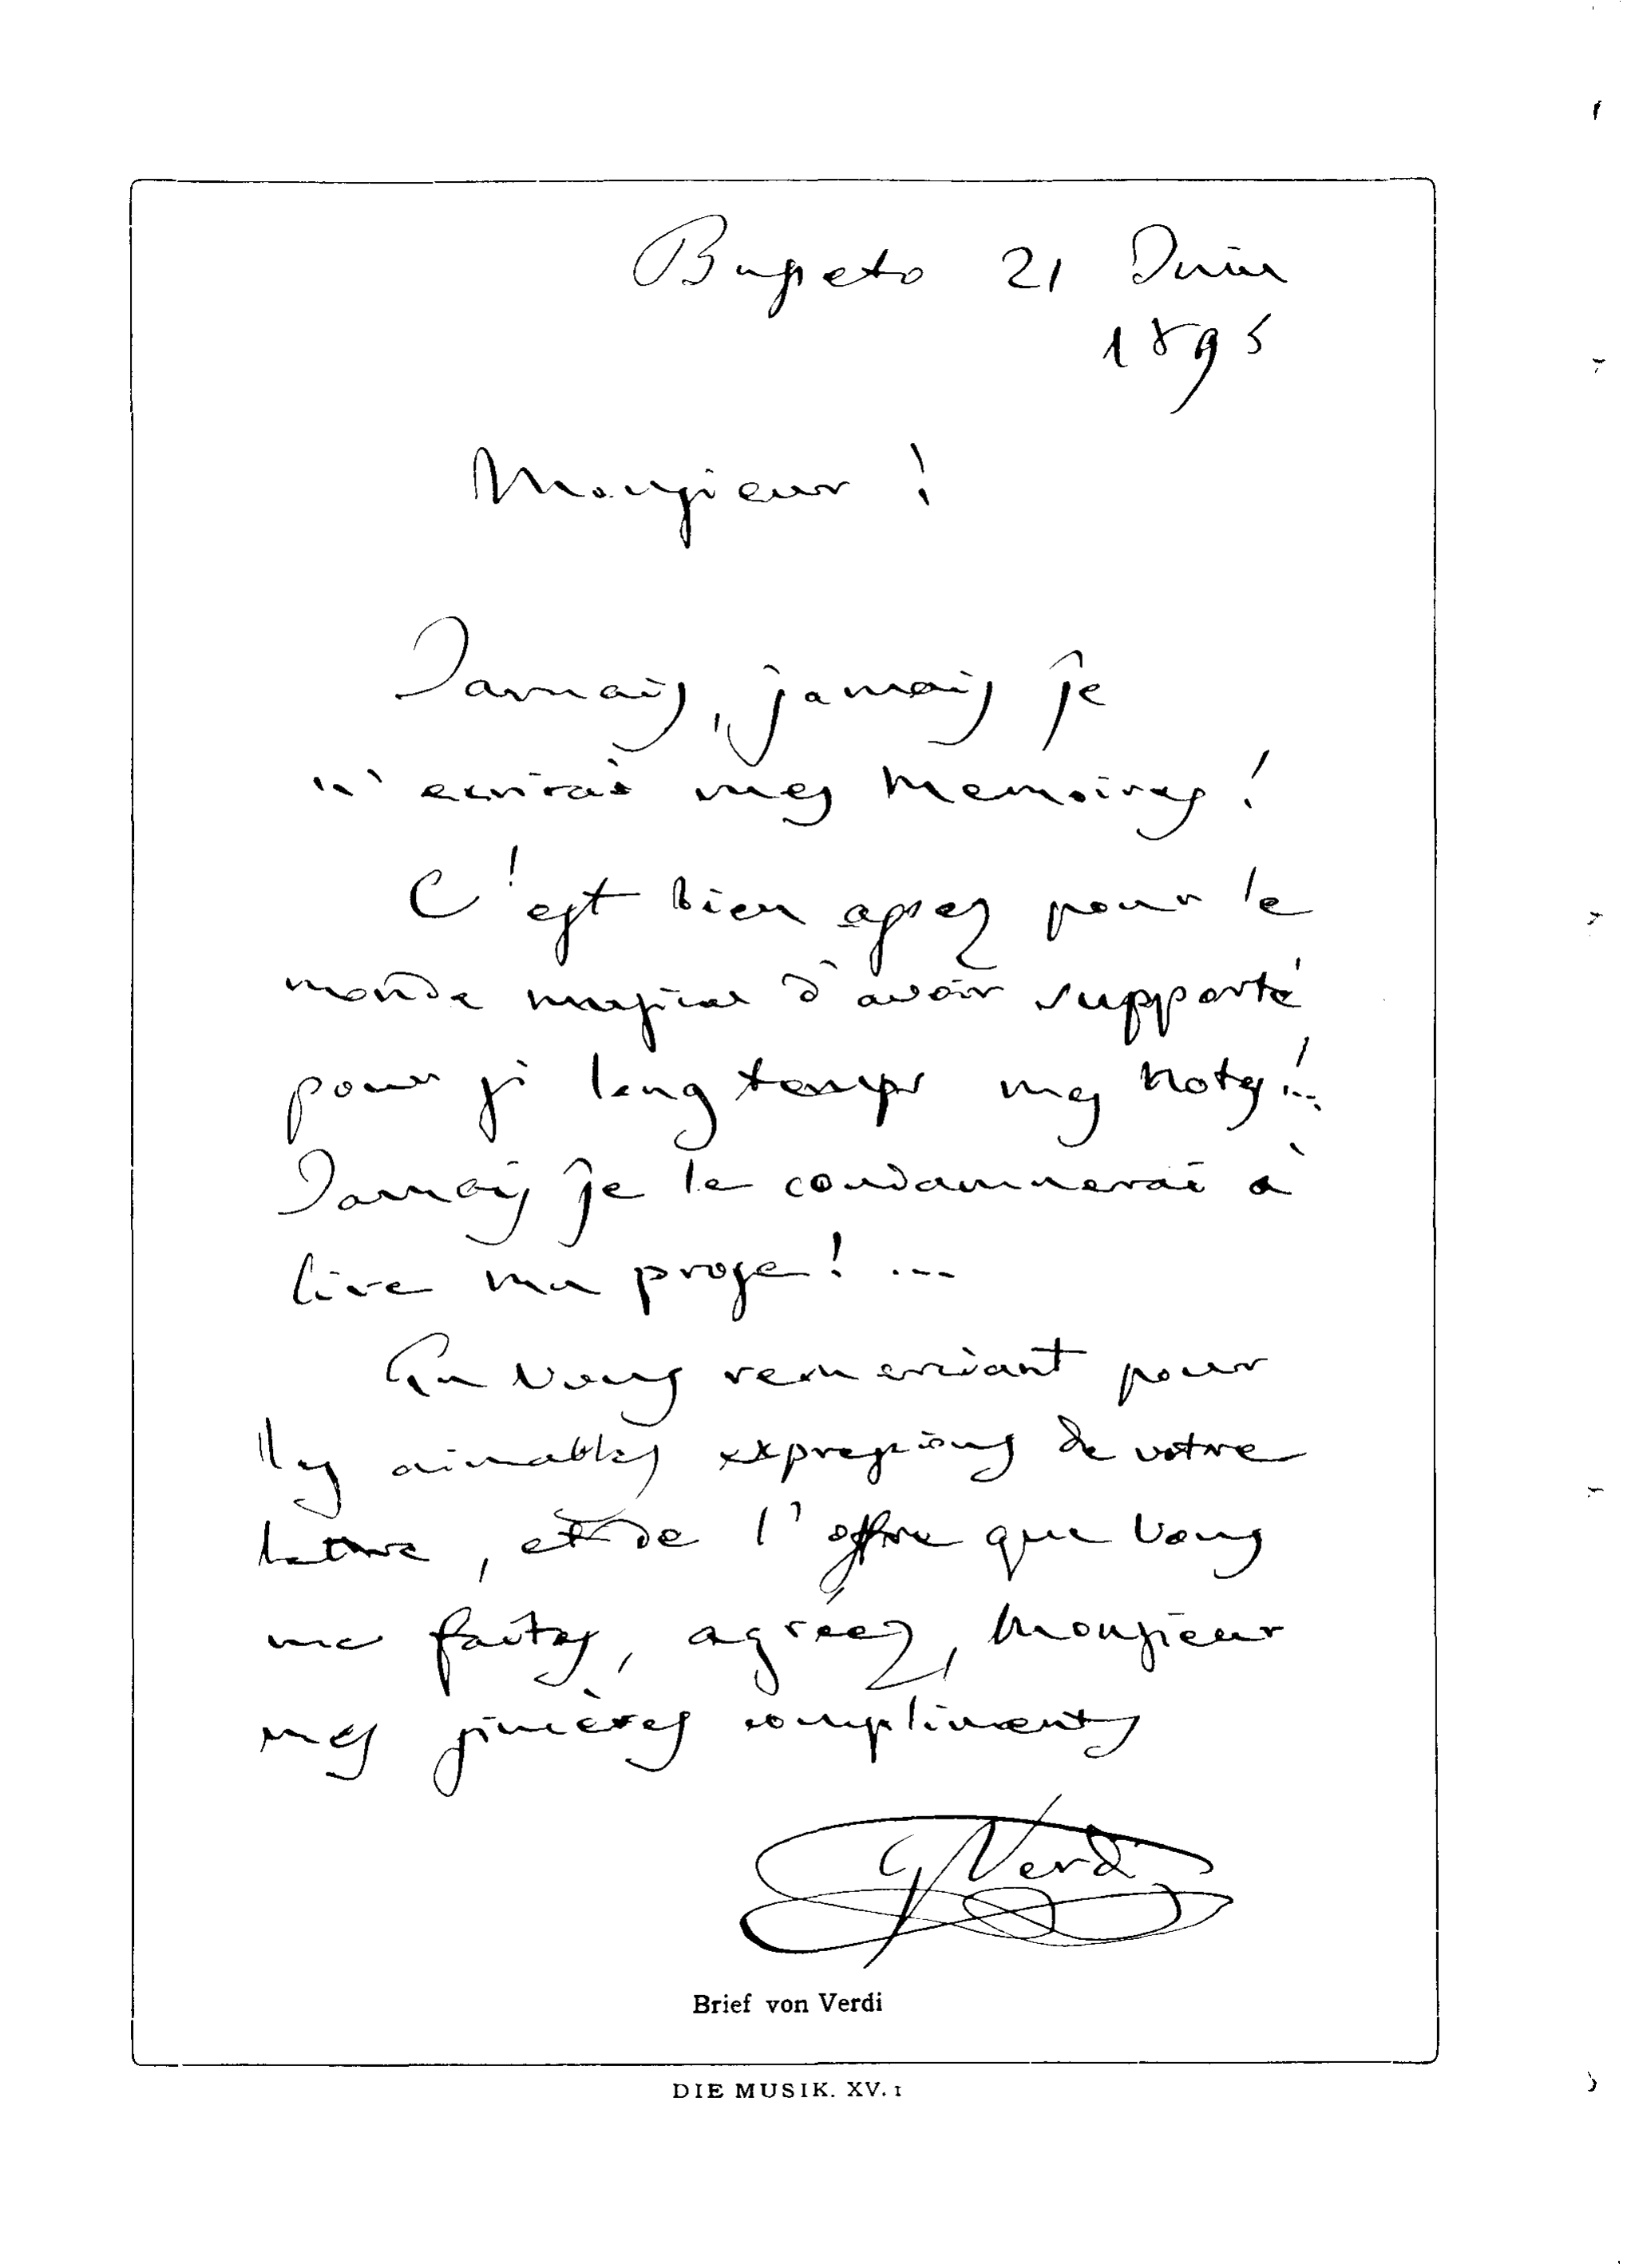 Busseto 21 Juin
1895
Monsieur !
Jamais, jamais je
n'ecrirai mes Memoires !
C'est bien assez pour le
monde musical d'avoir supporté
pour si longtemps mes notes !...
Jamais je le condamnerai à
lire ma prose ! ...
En vous remerciant pour
les aimables expressions de votre
lettre, et de l'offre que vous
me faites, agréez, Monsieur
mes sincères compliments
G Verdi
Brief von Verdi
DIE MUSIK. XV. 1